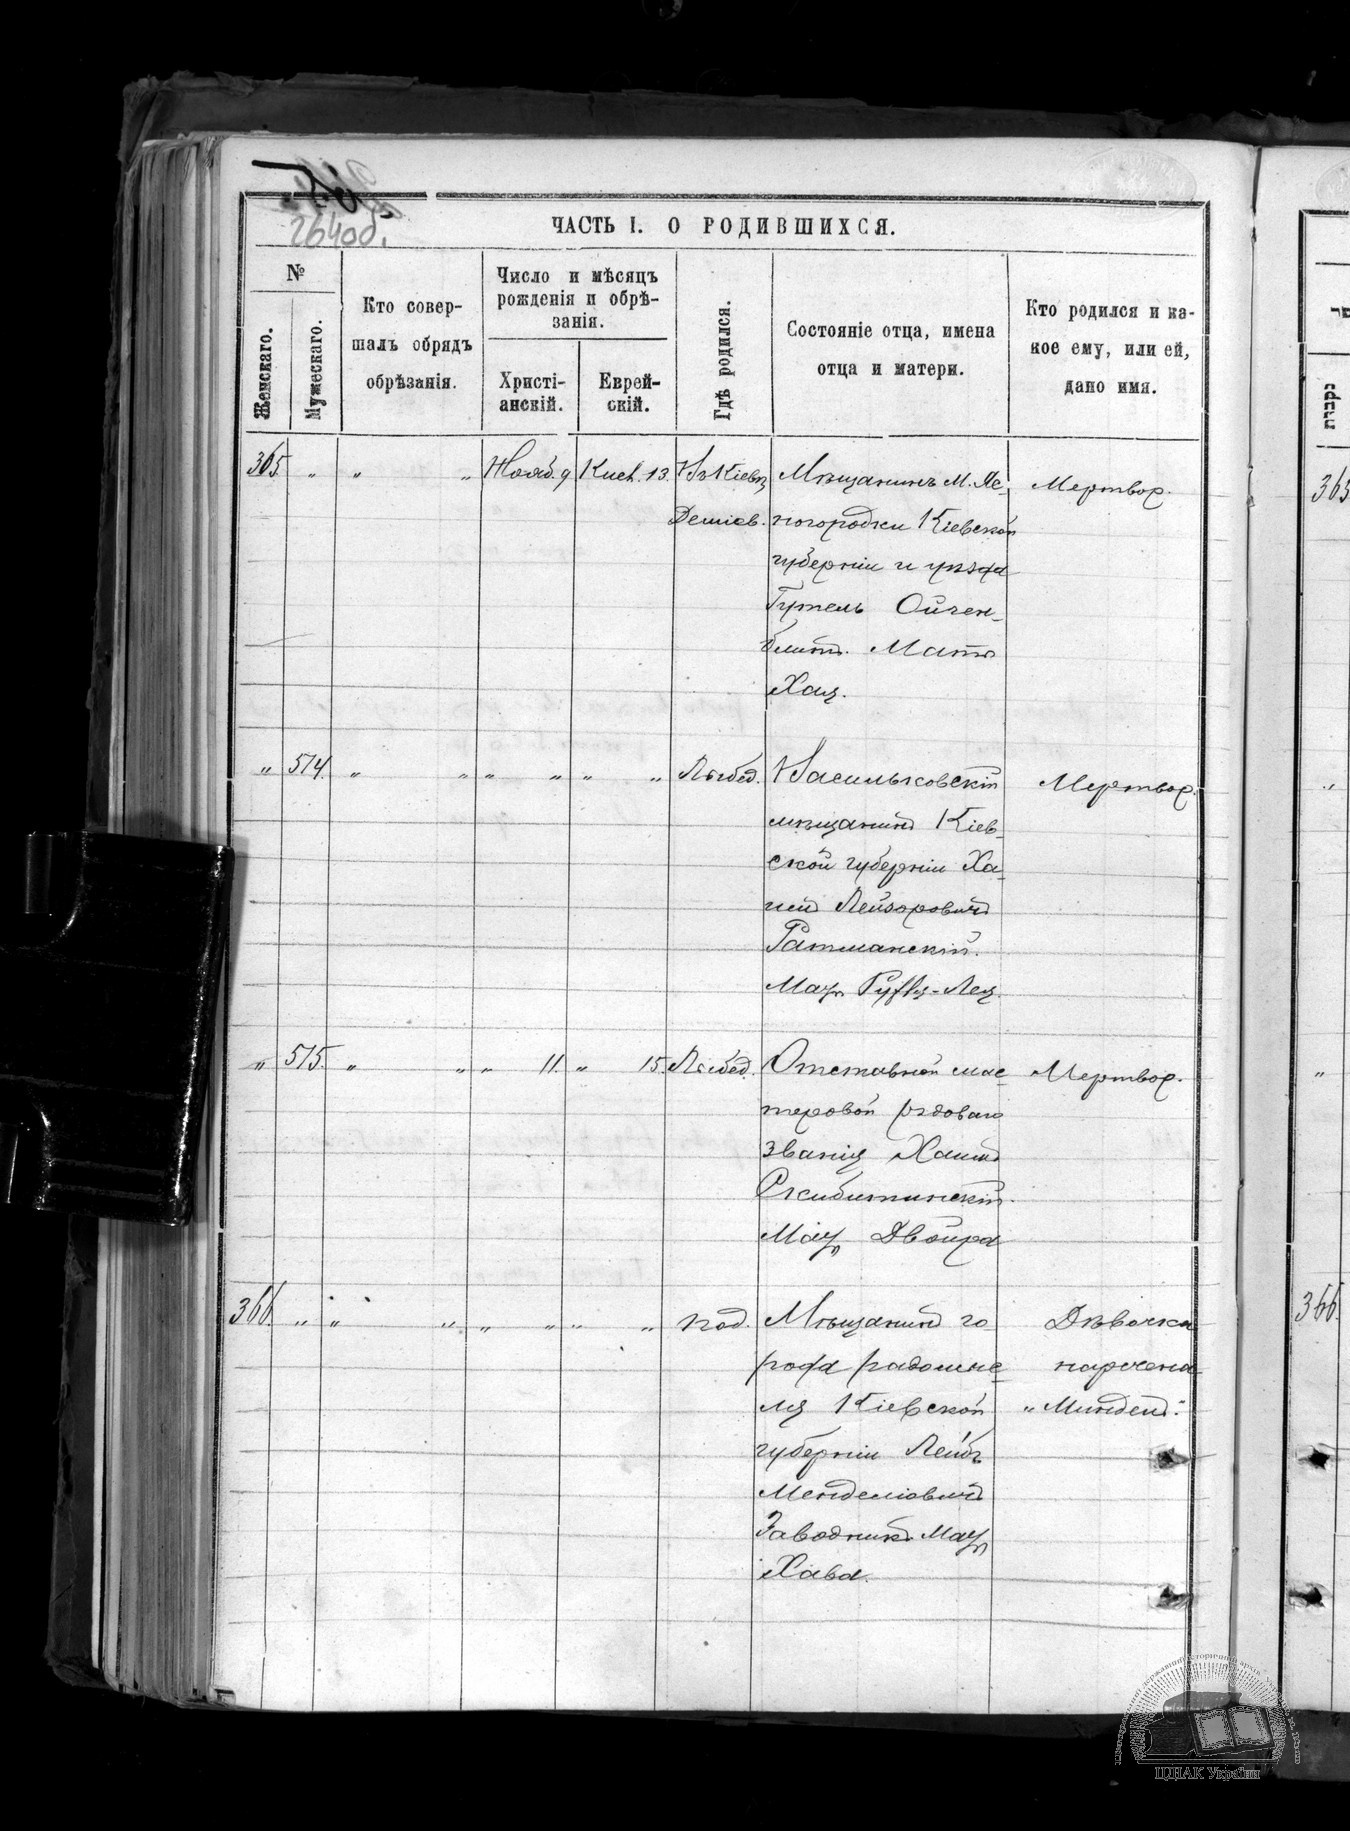 264об.
ЧАСТЬ I. О РОДИВШИХСЯ.
№
Женскаго.
Мужескаго.
Кто совер-
шалъ обрядъ
обрѣзанія.
Число и мѣсяцъ
рожденія и обрѣ-
занія.
Христі-
анскій.
Еврей-
скій.
Гдѣ родился.
Состояніе отца, имена
отца и матери.
Кто родился и ка-
кое ему, или ей,
дано имя.
365. " " " Нояб. 9 Кисл. 13. Въ Кіевѣ
Деміев.
Мѣщанинъ м. Яс-
ногородки Кіевской
губерніи и уѣзда
Гутель Ойген-
блитъ. Мать
Хая.
Мертвор.
" 514. " " " " " " Лыбед.
Васильковскій
мѣщанинъ Кіев-
ской губерніи Ха-
имъ Лейзоровичъ
Ратманскій.
Мать -Лея.
Мертвор.
" 515. " " " 11. " 15. Лыбед.
Отставной мас-
теровой рядоваго
званія Хаимъ
Мать Двойра
Мертвор.
366. " " " " " " " под.
Мѣщанинъ го-
рода Радомыс-
ля Кіевской
губерніи Лейбъ
Менделіовичъ
Заводникъ Мать
Хава.
Дѣвочка
наречена
"Миндель".
363
"
"
366.
נקבות
ЦДІАК України